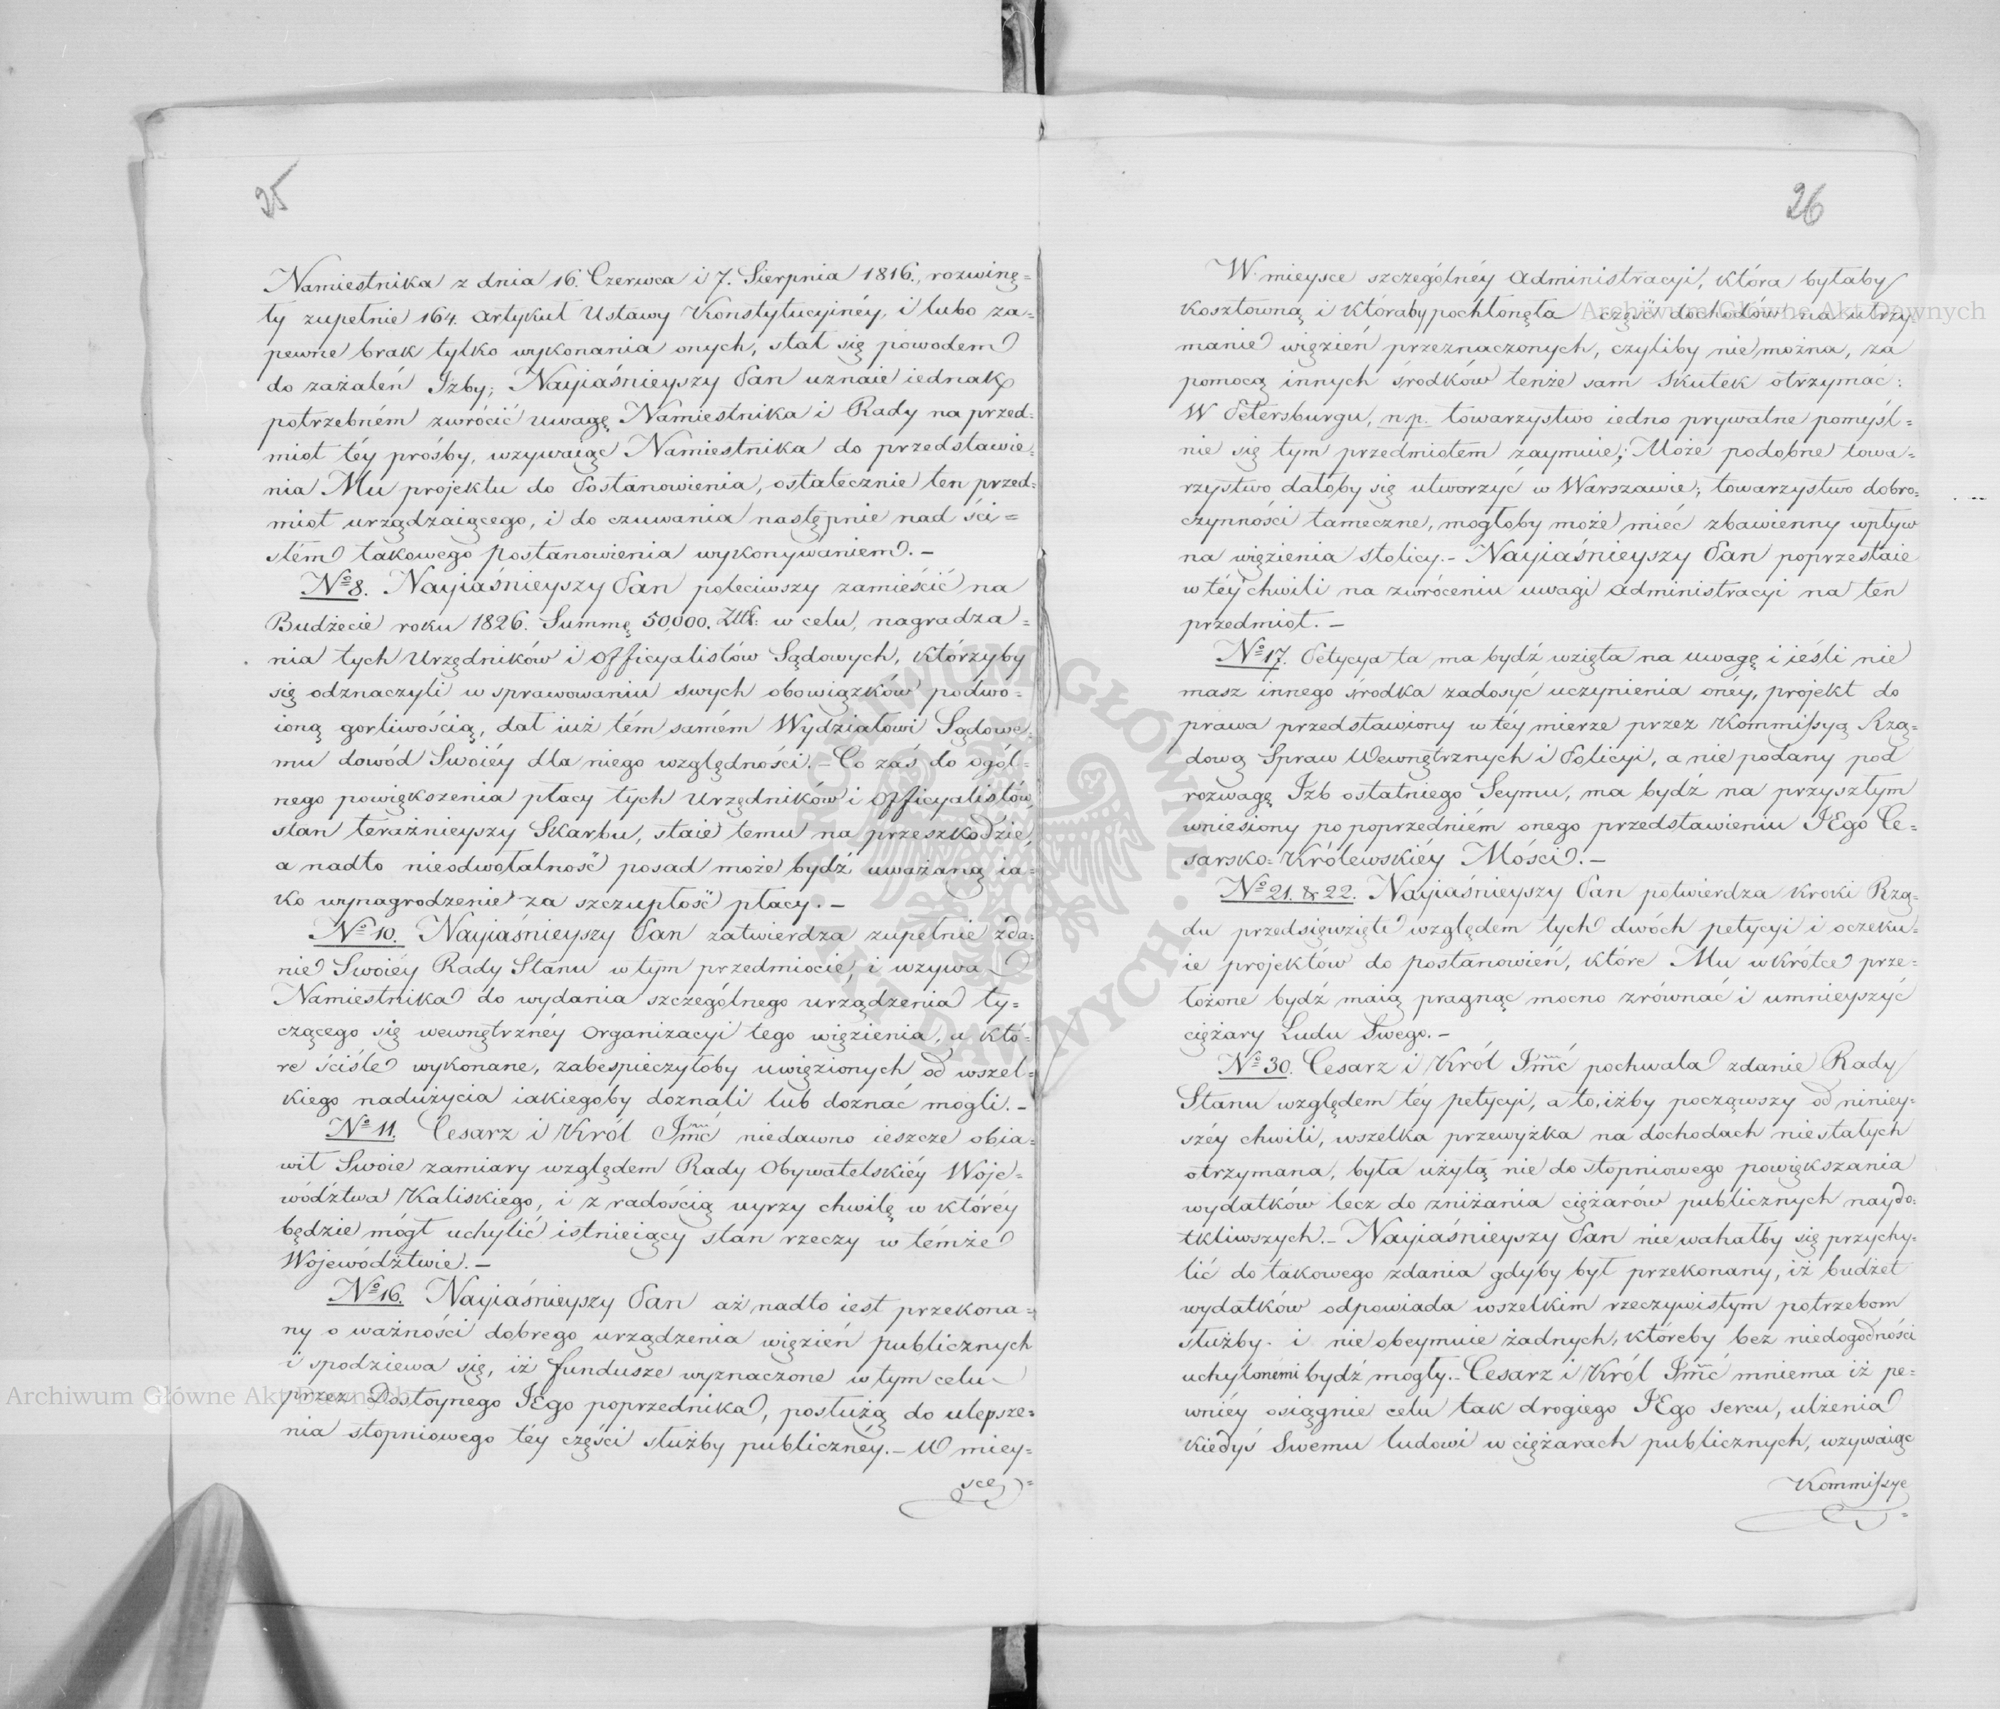 25
Namiestnika z dnia 16. Czerwca i 7. Sierpnia 1816., rozwinę=
ty zupełnie 164. Artykuł Ustawy Konstytucyinéy, i lubo za=
pewne brak tylko wykonania onych, stał się powodem
do zażaleń Izby; Nayiaśnieyszy Pan uznaie iednak
potrzebném zwrócić uwagę Namiestnika i Rady na przed=
miot téy próśby, wzywaiąc Namiestnika do przedstawie=
nia Mu projektu do Postanowienia, ostatecznie ten przed=
miot urządzaiącego, i do czuwania następnie nad ści=
słém takowego postanowienia wykonywaniem. –
No 8. Nayiaśnieyszy Pan poleciwszy zamieścić na
Budżecie roku 1826. Summę 50,000. Złtt: w celu, nagradza=
nia tych Urzędników i Officyalistów Sądowych, którzyby
się odznaczyli w sprawowaniu swych obowiązków podwo=
ioną gorliwością, dał iuż tém samém Wydziałowi Sądowe=
mu dowód Swoiéy dla niego względności. – Co zaś do ogól=
nego powiększenia płacy tych Urzędników i Officyalistów,
stan teraźnieyszy Skarbu, staie temu na przeszkodzie,
a nadto nieodwołalność posad może bydź uważaną ia=
ko wynagrodzenie za szczupłość płacy. –
No 10. Nayiaśnieyszy Pan zatwierdza zupełnie zda=
nie Swoiéy Rady Stanu w tym przedmiocie, i wzywa
Namiestnika do wydania szczególnego urządzenia ty=
czącego się wewnętrznéy Organizacyi tego więzienia, a któ=
re ściśle wykonane, zabespieczyłoby uwięzionych od wszel=
kiego nadużycia iakiegoby doznali lub doznać mogli. –
No 11. Cesarz i Król Jmć niedawno ieszcze obia=
wił Swoie zamiary względem Rady Obywatelskiéy Woje=
wództwa Kaliskiego, i z radością uyrzy chwilę w któréy
będzie mógł uchylić istnieiący stan rzeczy w témże
Województwie. –
No 16. Nayiaśnieyszy Pan aż nadto iest przekona=
ny o ważności dobrego urządzenia więzień publicznych
i spodziewa się, iż fundusze wyznaczone w tym celu
przez Dostoynego JEgo poprzednika, posłużą do ulepsze=
nia stopniowego téy części służby publiczney. – W miey=
sce
26
W mieysce szczególnéy Administracyi, która byłaby
kosztowną i któraby pochłonęła część dochodów na utrzy=
manie więzień przeznaczonych, czyliby nie można, za
pomocą innych środków tenże sam skutek otrzymać:
W Petersburgu, n.p. towarzystwo iedno prywatne pomyśl=
nie się tym przedmiotem zaymuie; Może podobne towa=
rzystwo dałoby się utworzyć w Warszawie; towarzystwo dobro=
czynności tameczne, mogłoby może mieć zbawienny wpływ
na więzienia stolicy. – Nayiaśnieyszy Pan poprzestaie
w téy chwili na zwróceniu uwagi Administracyi na ten
przedmiot. –
No 17. Petycya ta ma bydź wzięta na uwagę i ieśli nie
masz innego środka zadosyć uczynienia onéy, projekt do
prawa przedstawiony w téy mierze przez Kommissyą Rzą=
dową Spraw Wewnętrznych i Policyi, a nie podany pod
rozwagę Izb ostatniego Seymu, ma bydź na przyszłym
wniesiony po poprzedniém onego przedstawieniu JEgo Ce=
sarsko=Królewskiéy Mości. –
No 21. & 22. Nayiaśnieyszy Pan potwierdza kroki Rzą=
du przedsięwzięte względem tych dwóch petycyi i oczeku=
ie projektów do postanowień, które Mu wkrótce prze=
łożone bydź maią pragnąc mocno zrównać i umnieyszyć
ciężary Ludu Swego. –
No 30. Cesarz i Król Jmć pochwala zdanie Rady
Stanu względem téy petycyi, a to, iżby począwszy od niniey=
széy chwili, wszelka przewyżka na dochodach niestałych
otrzymana, była użytą nie do stopniowego powiększania
wydatków lecz do zniżania ciężarów publicznych naydo=
tkliwszych. – Nayiaśnieyszy Pan nie wahałby się przychy=
lić do takowego zdania gdyby był przekonany, iż budżet
wydatków odpowiada wszelkim rzeczywistym potrzebom
służby i nie obeymuie żadnych, któreby bez niedogodności
uchylonemi bydź mogły. – Cesarz i Król Jmć mniema iż pe=
wniéy osiągnie celu tak drogiego JEgo sercu, ulżenia
kiedyś Swemu ludowi w ciężarach publicznych, wzywaiąc
Kommissye
Archiwum Główne Akt Dawnych
Archiwum Główne Akt Dawnych
ARCHIWUM GŁÓWNE AKT DAWNYCH